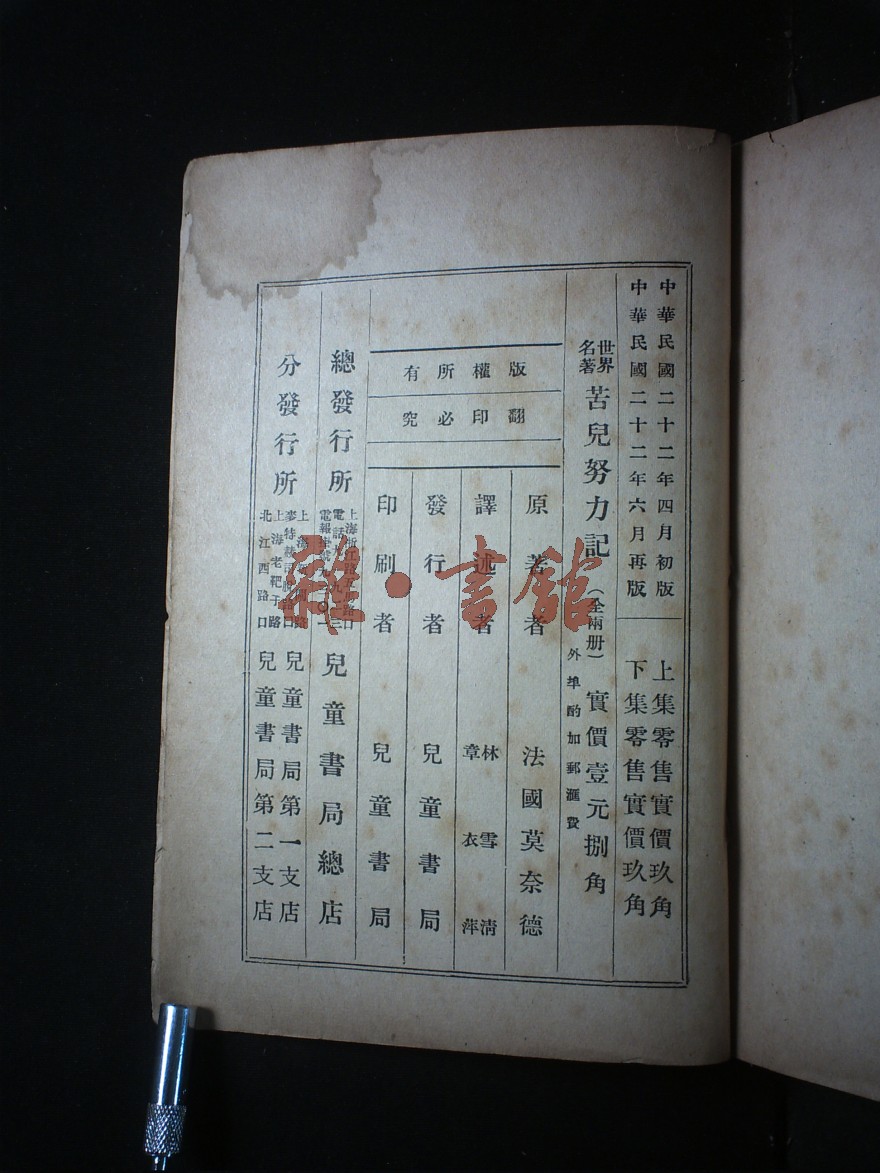 中華民國二十二年四月初版
中華民國二十二年六月再版
上集零售實價玖角
下集零售實價玖角
世界名著
苦兒努力記（全兩册）實價壹元捌角
外埠酌加郵滙費
版權所有
翻印必究
原著者 法國莫奈德
譯述者 林雪清 章衣萍
發行者 兒童書局
印刷者 兒童書局
總發行所
上海
電話
電報掛號
兒童書局總店
分發行所
上海
麥特赫司脫路口
兒童書局第一支店
上海老靶子路
北江西路口
兒童書局第二支店
雜·書館